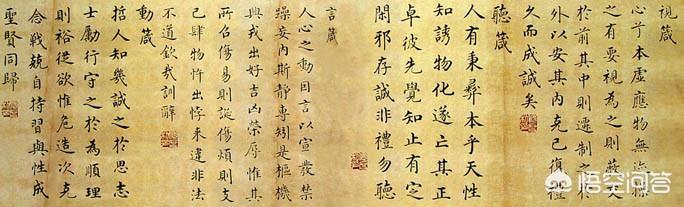 視箴
心兮本虛應物無迹操
之有要視為之則蔽交
於前其中則遷制之於
外以安其內克己復禮
久而成誠矣
聽箴
人有秉彝本乎天性
知誘物化遂亡其正
卓彼先覺知止有定
閑邪存誠非禮勿聽
言箴
人心之動因言以宣發禁
躁妄內斯靜專矧是樞機
興戎出好吉凶榮辱惟其
所召傷易則誕傷煩則支
己肆物忤出悖來違非法
不道欽哉訓辭
動箴
哲人知幾誠之於思志
士勵行守之於為順理
則裕從欲惟危造次克
念戰兢自持習與性成
聖賢同歸
悟空问答